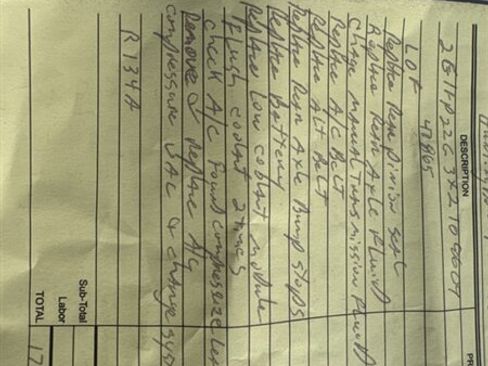 DESCRIPTION
PR
2G11P22G3X2T0
LOF
Replace Rear pinion seal
Replace Rear Axle Fluid
Change manual Transmission Fluid
Replace A/C Belt
Replace ALT Belt
Replace Rear Axle Bump stops
Replace Battery
Replace Low coolant module
Flush coolant 2 times
Check A/C Found
Remove & Replace A/C
VAC & change sys
R134A
Sub-Total
Labor
TOTAL
17